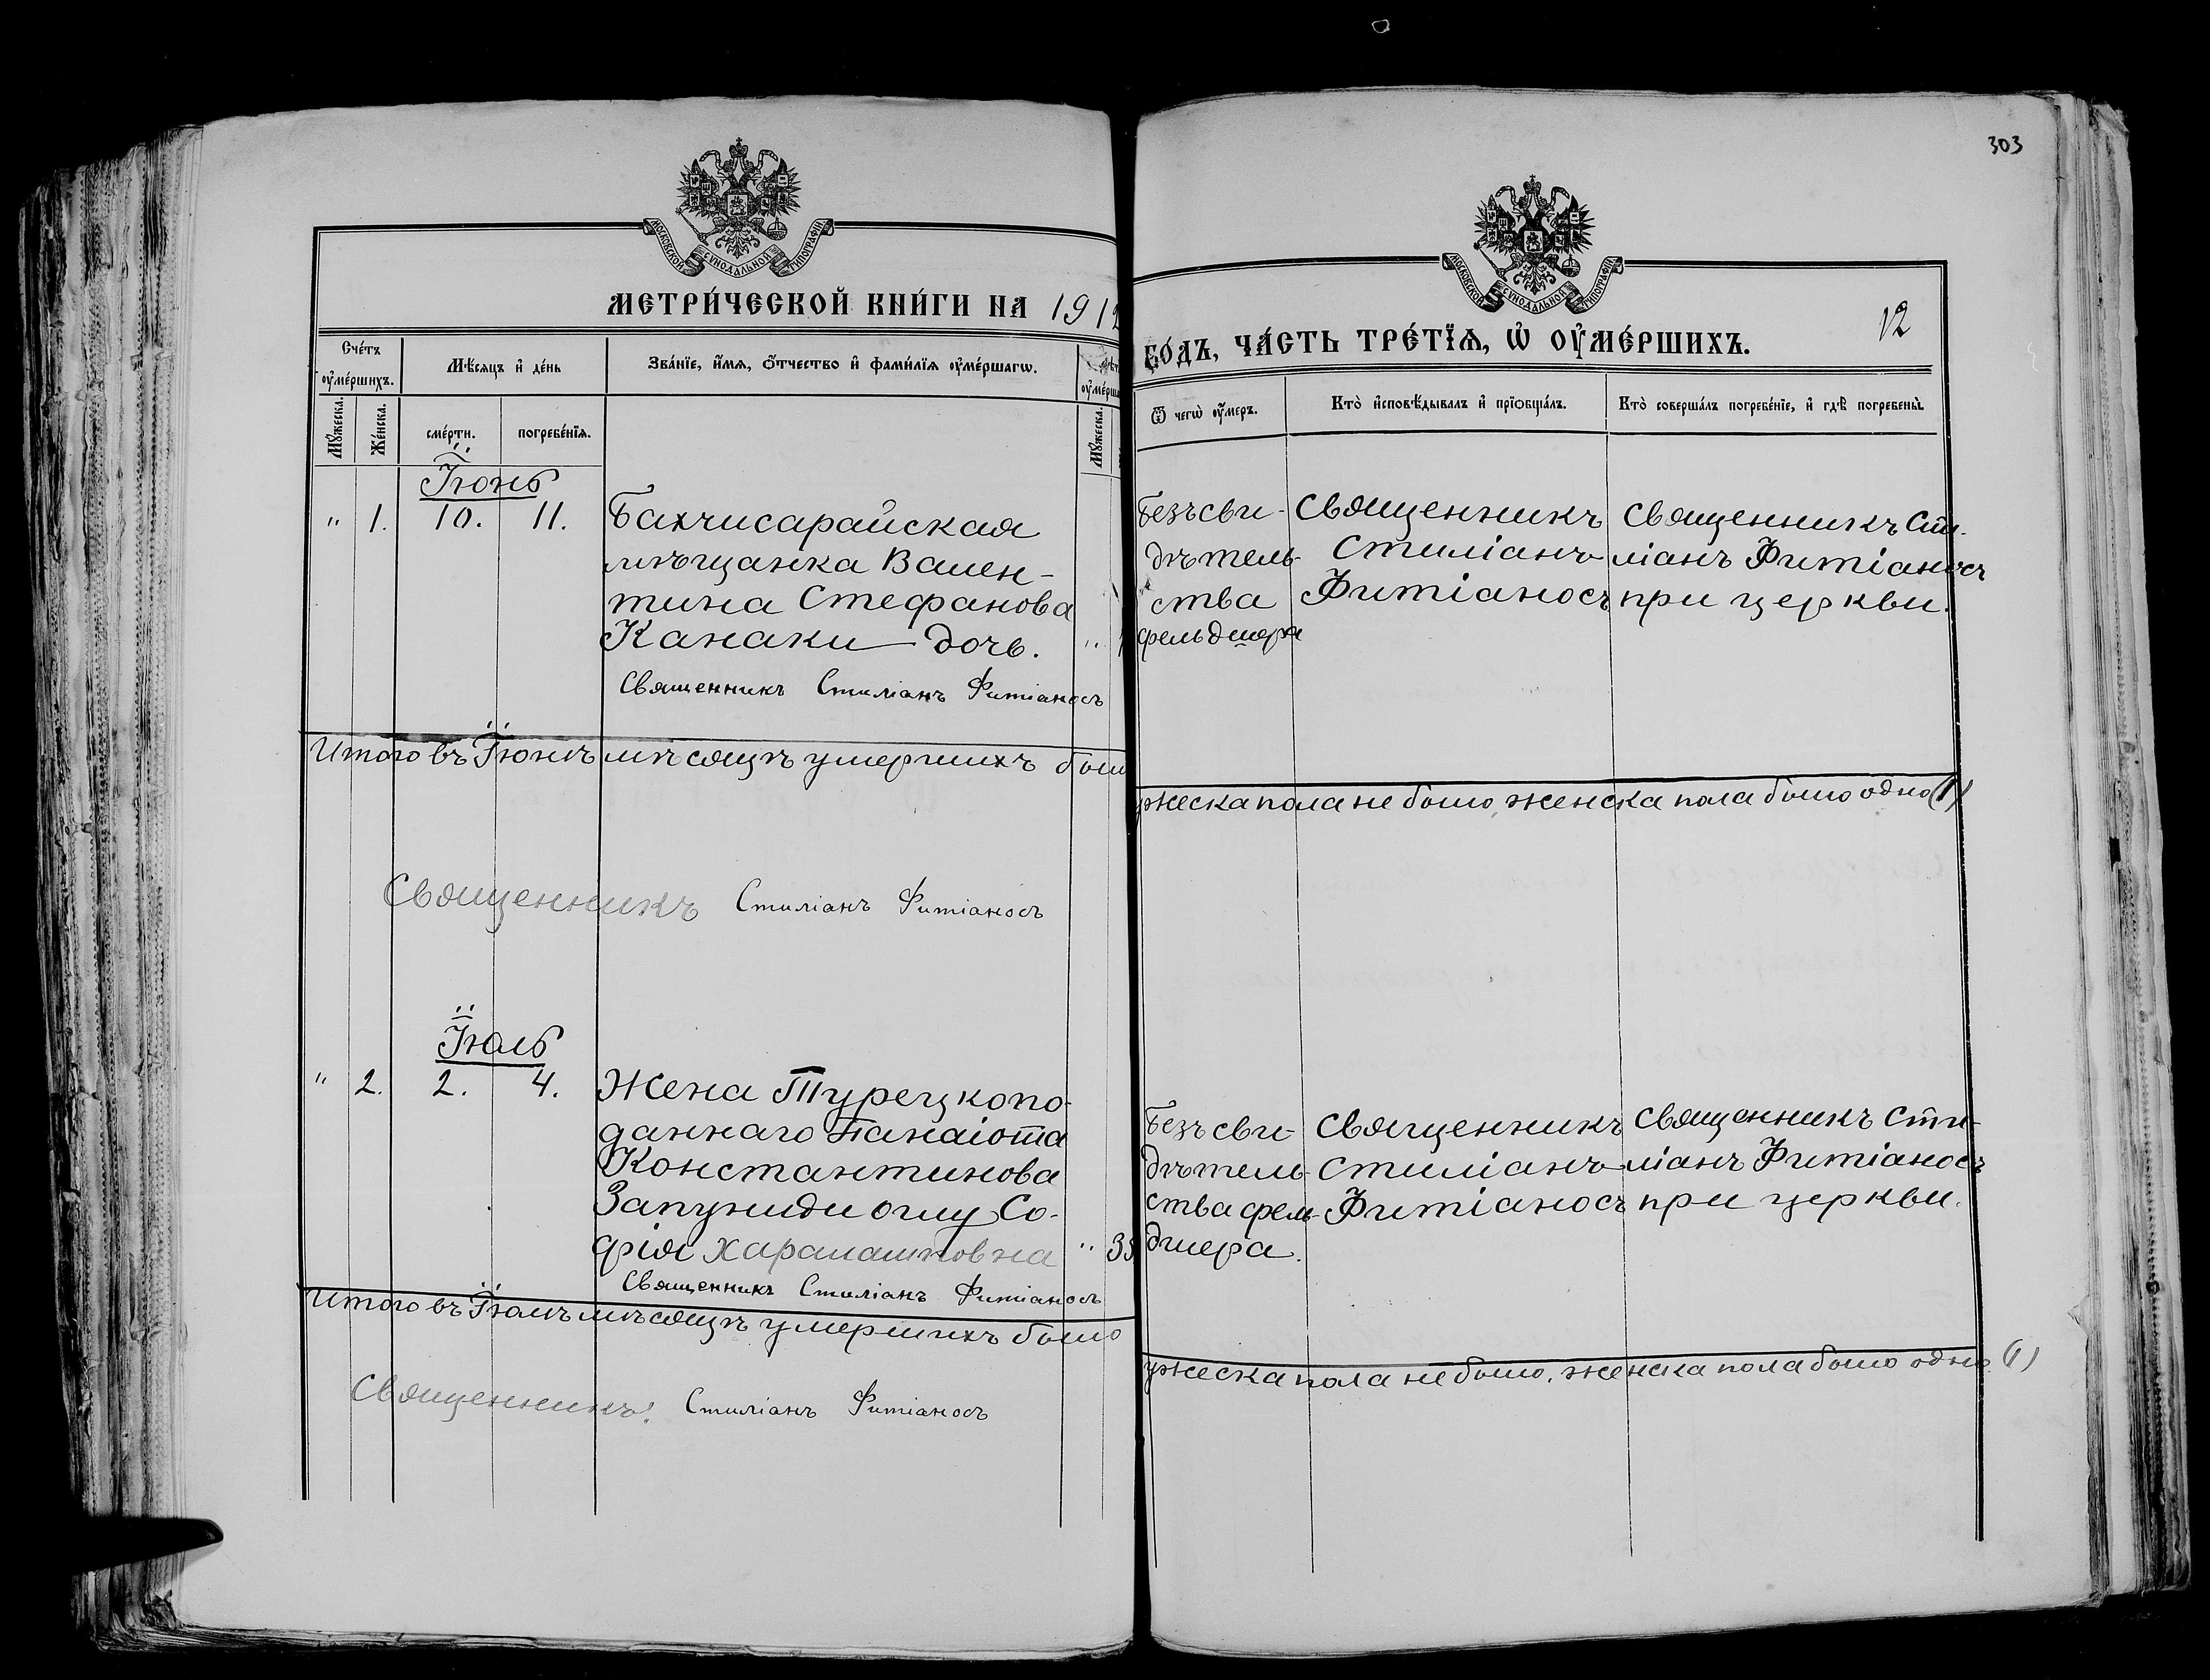 303
МОСКОВСКОЙ СѴНОДАЛЬНОЙ ТИПОГРАФІИ
МОСКОВСКОЙ СѴНОДАЛЬНОЙ ТИПОГРАФІИ
МЕТРИ́ЧЕСКОЙ КНИ́ГИ НА 1912
ГО́ДЪ, ЧА́СТЬ ТРЕ́ТЇѦ, Ѡ҆ ОУ҆МЕ́РШИХЪ.
12
Сче́тъ оу҆ме́ршихъ.
Мѣ́сяцъ и҆ де́нь
Зва́нїе, и҆́мѧ, ѻ҆́тчество и҆ фами́лїѧ оу҆ме́ршагѡ.
Мꙋ́жеска.
Же́нска.
сме́рти.
погребе́нїѧ.
Мꙋ́жеска.
Ѿ чегѡ̀ оу҆́меръ.
Кто̀ и҆сповѣ́дывалъ и҆ прїѻбща́лъ.
Кто̀ соверша́лъ погребе́нїе, и҆ гдѣ̀ погребены̀.
Іюнь
" 1. 10. 11. Бахчисарайская
мѣщанка Вален-
тина Стефанова
Канаки дочь. "
Священникъ Стиліанъ Фитіаносъ
Безъ сви-
дѣтель-
ства
фельдшера
Священникъ
Стиліанъ
Фитіаносъ
Священникъ Сти-
ліанъ Фитіаносъ
при церкви.
Итого въ Іюнѣ мѣсяцѣ умершихъ
ужеска пола не было, женска пола было одно (1)
Священникъ Стиліанъ Фитіаносъ
Іюль
" 2. 2. 4. Жена Турецкопо-
даннаго Панаіота
Константинова
Запуниди оглу Со-
фія Харалампіовна "
Священникъ Стиліанъ Фитіаносъ
Безъ сви-
дѣтель-
ства фель-
дшера.
Священникъ
Стиліанъ
Фитіаносъ
Священникъ Сти-
ліанъ Фитіаносъ
при церкви.
Итого въ Іюлѣ мѣсяцѣ умершихъ было
ужеска пола не было, женска пола было одно (1)
Священникъ: Стиліанъ Фитіаносъ